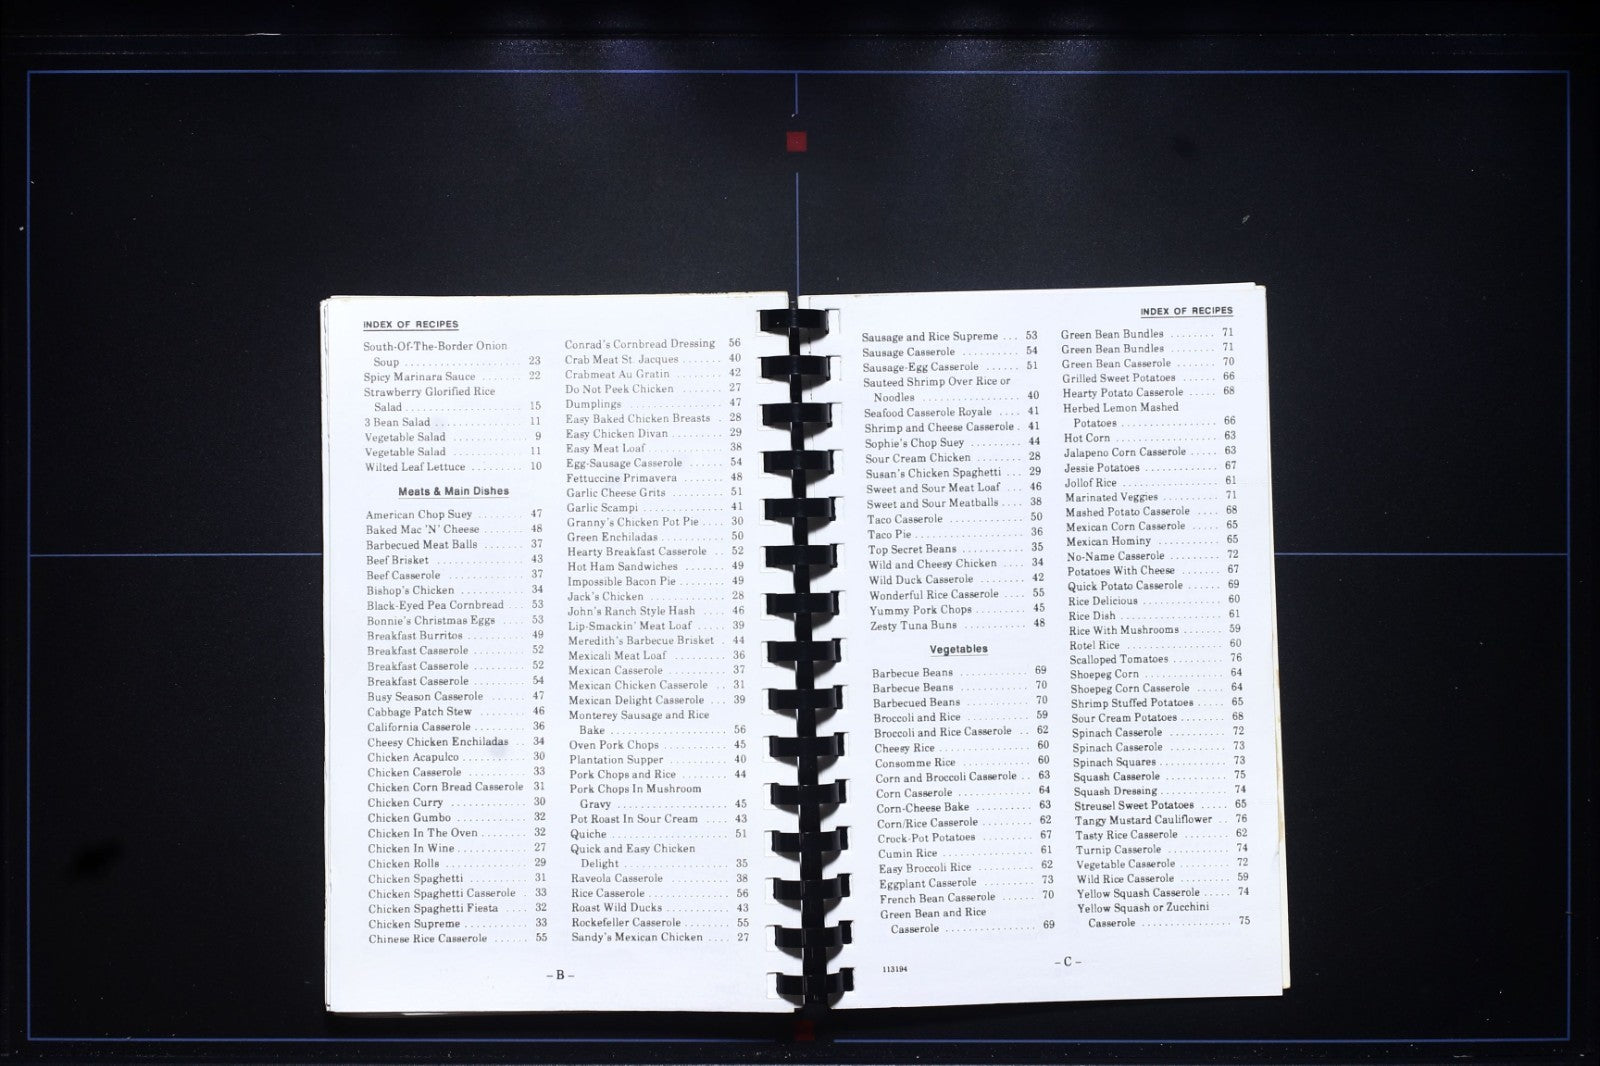 INDEX OF RECIPES
South-Of-The-Border Onion
Soup . . . . . . . . . . . . . . . . . . . . 23
Spicy Marinara Sauce . . . . . . . 22
Strawberry Glorified Rice
Salad . . . . . . . . . . . . . . . . . . . . 15
3 Bean Salad . . . . . . . . . . . . . . . 11
Vegetable Salad . . . . . . . . . . . . 9
Vegetable Salad . . . . . . . . . . . . 11
Wilted Leaf Lettuce . . . . . . . . . 10
Meats & Main Dishes
American Chop Suey . . . . . . . . 47
Baked Mac 'N' Cheese . . . . . . . 48
Barbecued Meat Balls . . . . . . . 37
Beef Brisket . . . . . . . . . . . . . . . 43
Beef Casserole . . . . . . . . . . . . . 37
Bishop's Chicken . . . . . . . . . . . 34
Black-Eyed Pea Cornbread . . . 53
Bonnie's Christmas Eggs . . . . . 53
Breakfast Burritos . . . . . . . . . . 49
Breakfast Casserole . . . . . . . . . 52
Breakfast Casserole . . . . . . . . . 52
Breakfast Casserole . . . . . . . . . 54
Busy Season Casserole . . . . . . 47
Cabbage Patch Stew . . . . . . . . 46
California Casserole . . . . . . . . . 36
Cheesy Chicken Enchiladas . . 34
Chicken Acapulco . . . . . . . . . . . 30
Chicken Casserole . . . . . . . . . . 33
Chicken Corn Bread Casserole 31
Chicken Curry . . . . . . . . . . . . . 30
Chicken Gumbo . . . . . . . . . . . . 32
Chicken In The Oven . . . . . . . . 32
Chicken In Wine . . . . . . . . . . . . 27
Chicken Rolls . . . . . . . . . . . . . . 29
Chicken Spaghetti . . . . . . . . . . 31
Chicken Spaghetti Casserole . 33
Chicken Spaghetti Fiesta . . . . 32
Chicken Supreme . . . . . . . . . . . 33
Chinese Rice Casserole . . . . . . 55
Conrad's Cornbread Dressing 56
Crab Meat St. Jacques . . . . . . . 40
Crabmeat Au Gratin . . . . . . . . 42
Do Not Peek Chicken . . . . . . . 27
Dumplings . . . . . . . . . . . . . . . . 47
Easy Baked Chicken Breasts . 28
Easy Chicken Divan . . . . . . . . . 29
Easy Meat Loaf . . . . . . . . . . . . 38
Egg-Sausage Casserole . . . . . . 54
Fettuccine Primavera . . . . . . . 48
Garlic Cheese Grits . . . . . . . . . 51
Garlic Scampi . . . . . . . . . . . . . . 41
Granny's Chicken Pot Pie . . . . 30
Green Enchiladas . . . . . . . . . . . 50
Hearty Breakfast Casserole . . 52
Hot Ham Sandwiches . . . . . . . 49
Impossible Bacon Pie . . . . . . . . 49
Jack's Chicken . . . . . . . . . . . . . 28
John's Ranch Style Hash . . . . 46
Lip-Smackin' Meat Loaf . . . . . 39
Meredith's Barbecue Brisket . 44
Mexicali Meat Loaf . . . . . . . . . 36
Mexican Casserole . . . . . . . . . . 37
Mexican Chicken Casserole . . 31
Mexican Delight Casserole . . . 39
Monterey Sausage and Rice
Bake . . . . . . . . . . . . . . . . . . . . 56
Oven Pork Chops . . . . . . . . . . . 45
Plantation Supper . . . . . . . . . . 40
Pork Chops and Rice . . . . . . . . 44
Pork Chops In Mushroom
Gravy . . . . . . . . . . . . . . . . . . . 45
Pot Roast In Sour Cream . . . . 43
Quiche . . . . . . . . . . . . . . . . . . . . 51
Quick and Easy Chicken
Delight . . . . . . . . . . . . . . . . . . 35
Raveola Casserole . . . . . . . . . . 38
Rice Casserole . . . . . . . . . . . . . . 56
Roast Wild Ducks . . . . . . . . . . . 43
Rockefeller Casserole . . . . . . . . 55
Sandy's Mexican Chicken . . . . 27
- B -
INDEX OF RECIPES
Sausage and Rice Supreme . . . 53
Sausage Casserole . . . . . . . . . . 54
Sausage-Egg Casserole . . . . . . 51
Sauteed Shrimp Over Rice or
Noodles . . . . . . . . . . . . . . . . . 40
Seafood Casserole Royale . . . . 41
Shrimp and Cheese Casserole . 41
Sophie's Chop Suey . . . . . . . . . 44
Sour Cream Chicken . . . . . . . . 28
Susan's Chicken Spaghetti . . . 29
Sweet and Sour Meat Loaf . . . 46
Sweet and Sour Meatballs . . . . 38
Taco Casserole . . . . . . . . . . . . . 50
Taco Pie . . . . . . . . . . . . . . . . . . . 36
Top Secret Beans . . . . . . . . . . . 35
Wild and Cheesy Chicken . . . . 34
Wild Duck Casserole . . . . . . . . 42
Wonderful Rice Casserole . . . . 55
Yummy Pork Chops . . . . . . . . . 45
Zesty Tuna Buns . . . . . . . . . . . 48
Vegetables
Barbecue Beans . . . . . . . . . . . . 69
Barbecue Beans . . . . . . . . . . . . 70
Barbecued Beans . . . . . . . . . . . 70
Broccoli and Rice . . . . . . . . . . . 59
Broccoli and Rice Casserole . . 62
Cheesy Rice . . . . . . . . . . . . . . . . 60
Consomme Rice . . . . . . . . . . . . 60
Corn and Broccoli Casserole . . 63
Corn Casserole . . . . . . . . . . . . . 64
Corn-Cheese Bake . . . . . . . . . . 63
Corn/Rice Casserole . . . . . . . . . 62
Crock-Pot Potatoes . . . . . . . . . 67
Cumin Rice . . . . . . . . . . . . . . . . 61
Easy Broccoli Rice . . . . . . . . . . 62
Eggplant Casserole . . . . . . . . . 73
French Bean Casserole . . . . . . 70
Green Bean and Rice
Casserole . . . . . . . . . . . . . . . . 69
Green Bean Bundles . . . . . . . . 71
Green Bean Bundles . . . . . . . . 71
Green Bean Casserole . . . . . . . 70
Grilled Sweet Potatoes . . . . . . 66
Hearty Potato Casserole . . . . . 68
Herbed Lemon Mashed
Potatoes . . . . . . . . . . . . . . . . . 66
Hot Corn . . . . . . . . . . . . . . . . . . 63
Jalapeno Corn Casserole . . . . . 63
Jessie Potatoes . . . . . . . . . . . . . 67
Jollof Rice . . . . . . . . . . . . . . . . . 61
Marinated Veggies . . . . . . . . . . 71
Mashed Potato Casserole . . . . 68
Mexican Corn Casserole . . . . . 65
Mexican Hominy . . . . . . . . . . . 65
No-Name Casserole . . . . . . . . . 72
Potatoes With Cheese . . . . . . . 67
Quick Potato Casserole . . . . . . 69
Rice Delicious . . . . . . . . . . . . . . 60
Rice Dish . . . . . . . . . . . . . . . . . . 61
Rice With Mushrooms . . . . . . . 59
Rotel Rice . . . . . . . . . . . . . . . . . 60
Scalloped Tomatoes . . . . . . . . . 76
Shoepeg Corn . . . . . . . . . . . . . . 64
Shoepeg Corn Casserole . . . . . 64
Shrimp Stuffed Potatoes . . . . . 65
Sour Cream Potatoes . . . . . . . . 68
Spinach Casserole . . . . . . . . . . 72
Spinach Casserole . . . . . . . . . . 73
Spinach Squares . . . . . . . . . . . . 73
Squash Casserole . . . . . . . . . . . 75
Squash Dressing . . . . . . . . . . . . 74
Streusel Sweet Potatoes . . . . . 65
Tangy Mustard Cauliflower . . 76
Tasty Rice Casserole . . . . . . . . 62
Turnip Casserole . . . . . . . . . . . 74
Vegetable Casserole . . . . . . . . . 72
Wild Rice Casserole . . . . . . . . . 59
Yellow Squash Casserole . . . . . 74
Yellow Squash or Zucchini
Casserole . . . . . . . . . . . . . . . . 75
113194
- C -